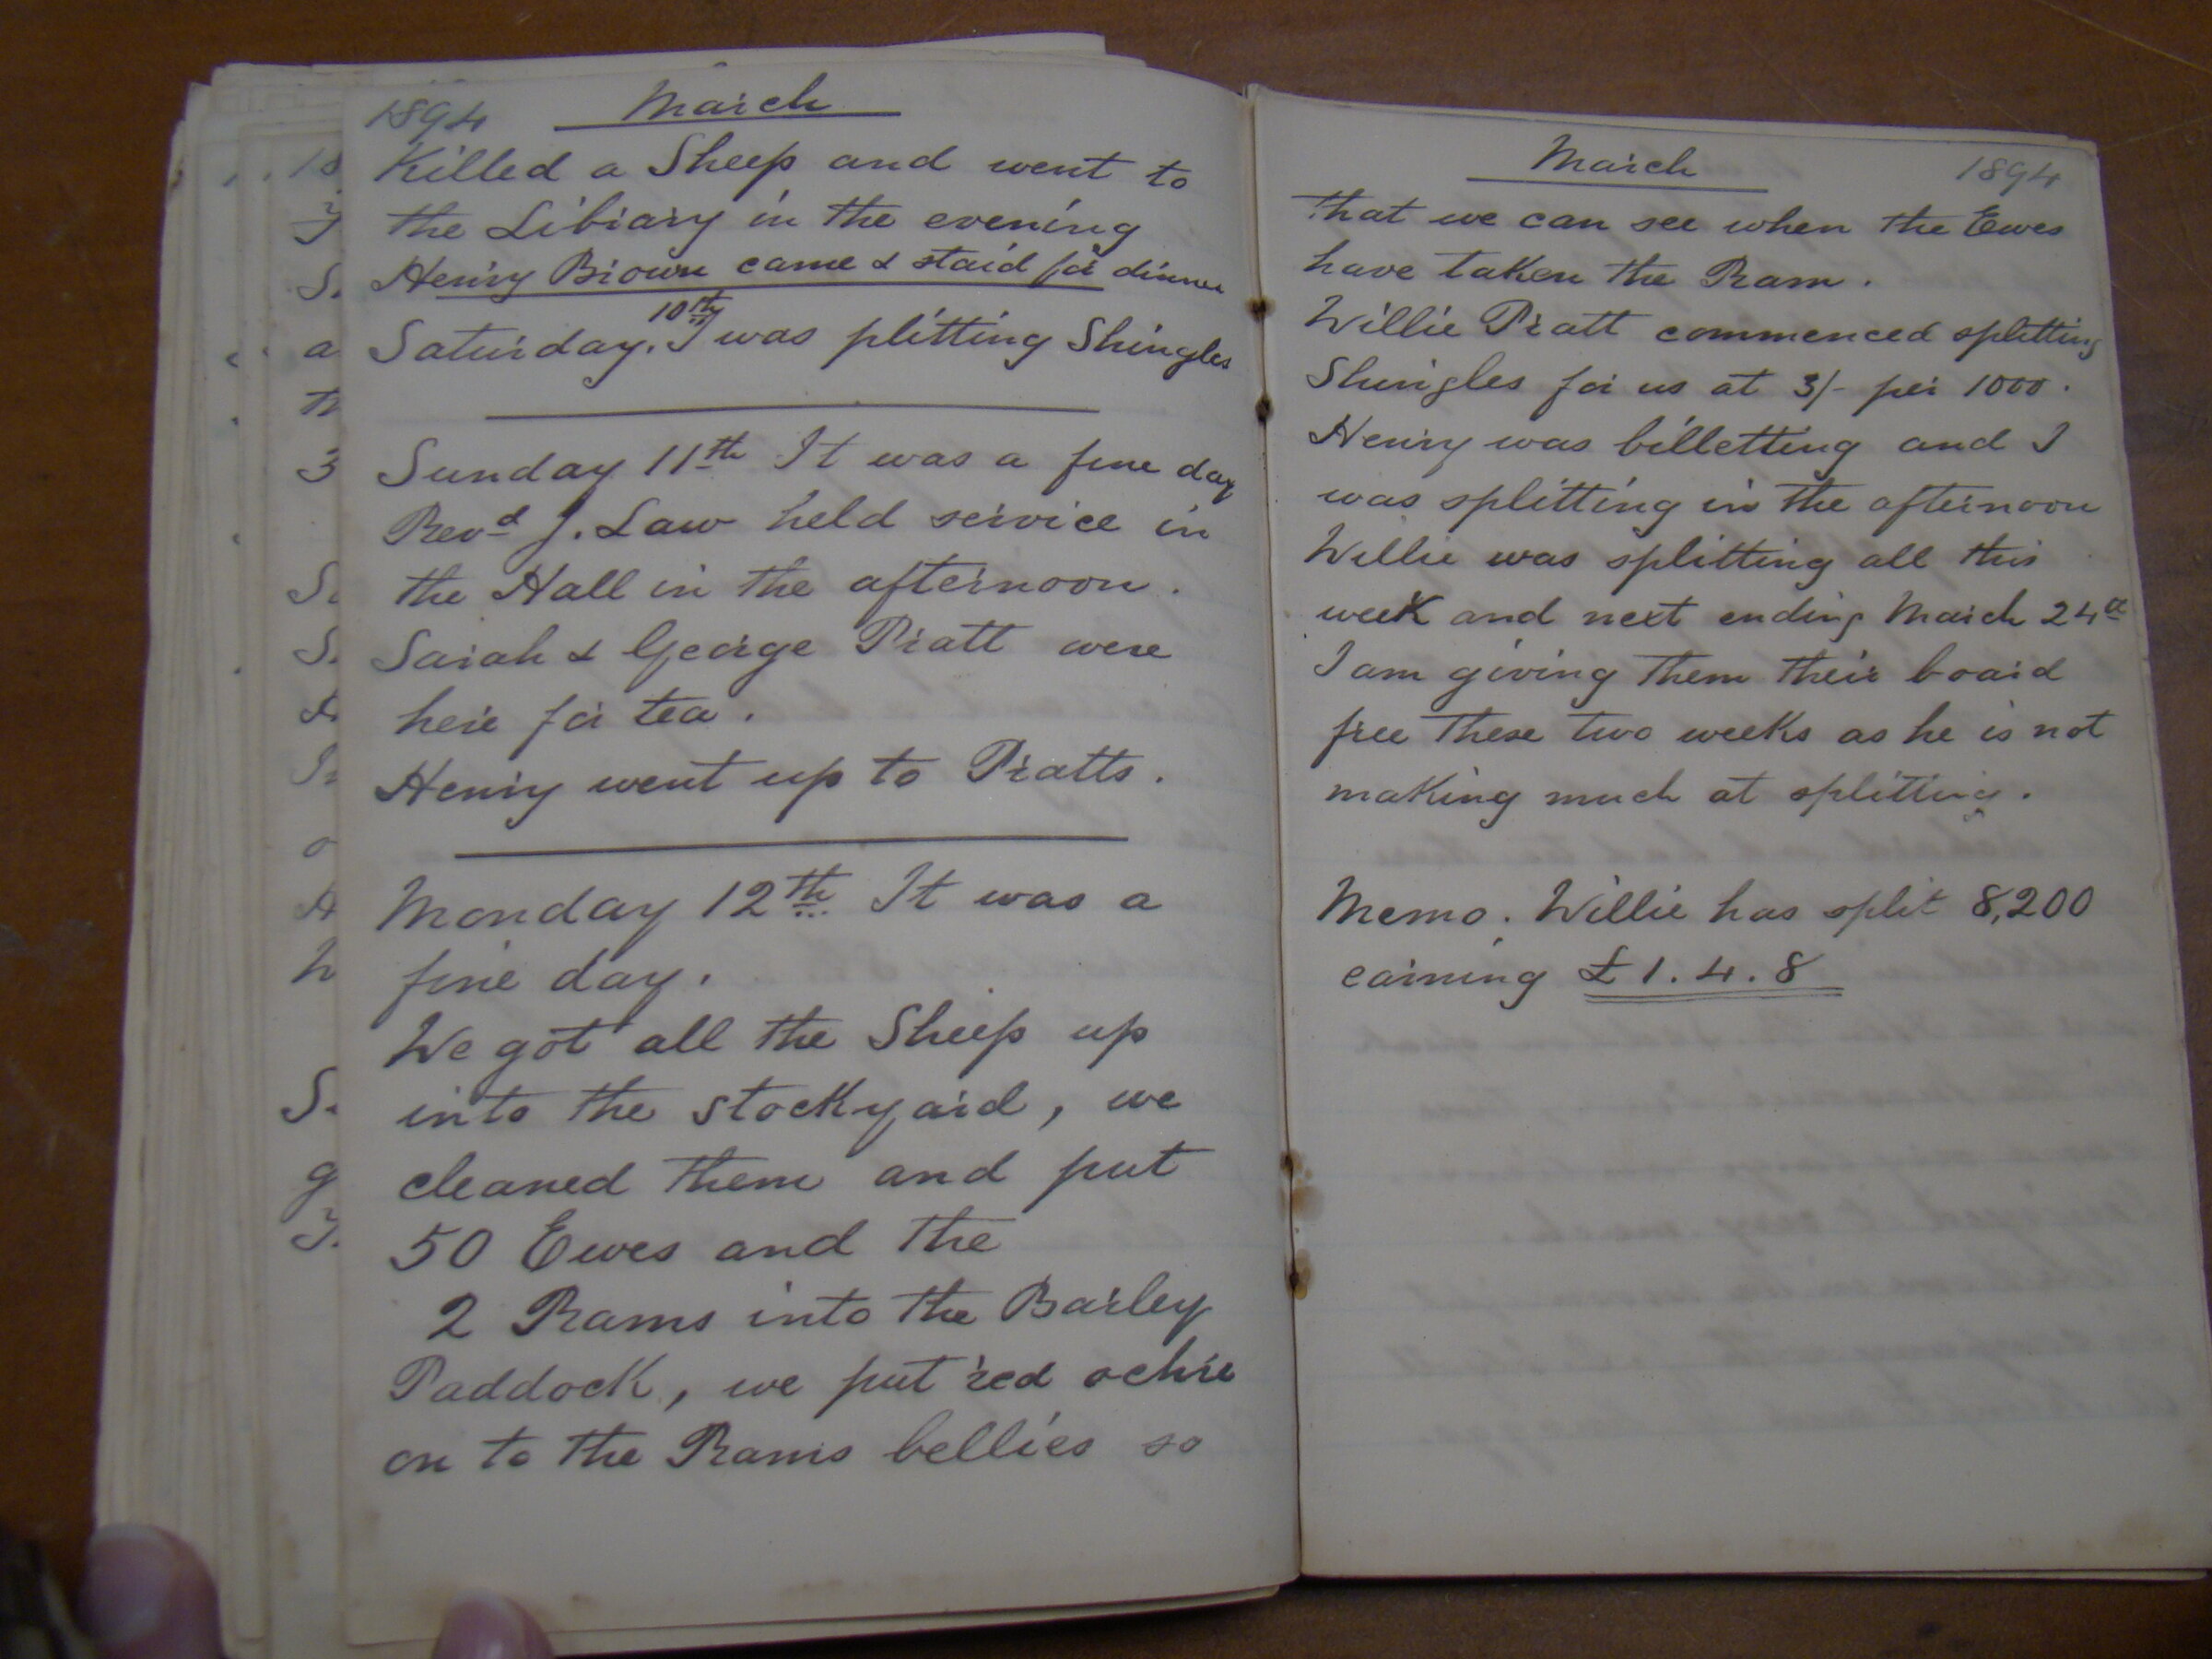 1894 March
Killed a Sheep and went to
the Library in the evening
Henry Brown came & staid for dinner
Saturday. 10th I was plitting Shingles
Sunday 11th It was a fine day
Revd J. Law held service in
the Hall in the afternoon.
Sarah & George Pratt were
here for tea.
Henry went up to Pratts.
Monday 12th It was a
fine day.
We got all the Sheep up
into the stockyard, we
cleaned them and put
50 Ewes and the
2 Rams into the Barley
Paddock, we put red ochre
on to the Rams bellies so
March 1894
that we can see when the Ewes
have taken the Ram.
Willie Pratt commenced splitting
Shingles for us at 3/- per 1000.
Henry was billetting and I
was splitting in the afternoon
Willie was splitting all this
week and next ending March 24th
I am giving them their board
free these two weeks as he is not
making much at splitting.
Memo. Willie has split 8,200
earning £1.4.8